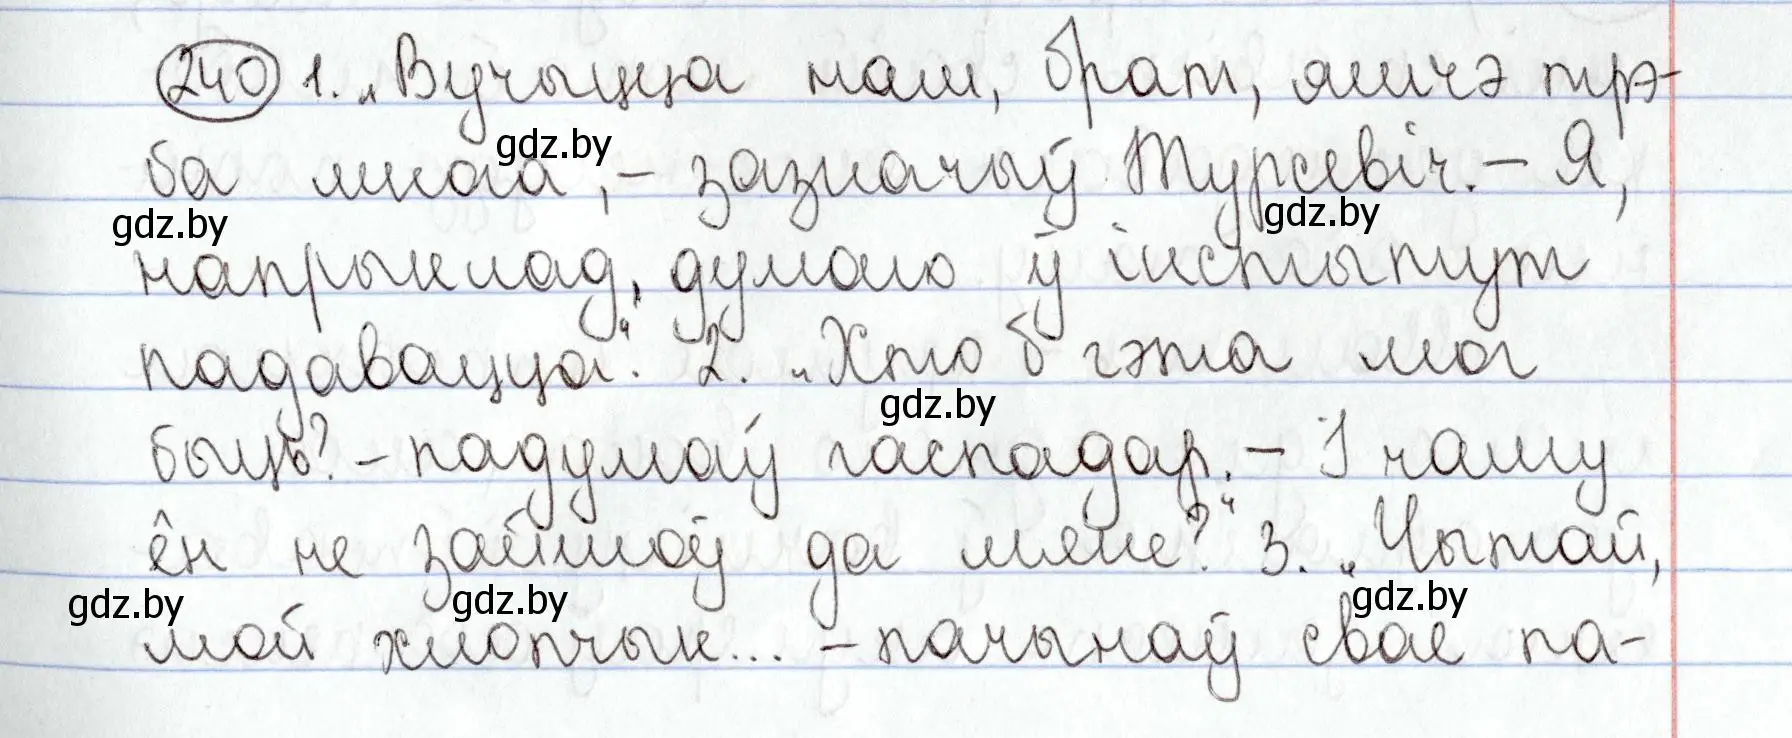 240 1. „Вучыцца нам, брат, яшчэ трэ-
ба многа, – зазначыў Турсевіч. – Я,
gdz.by
gdz.by gdz.by
напрыклад, думаю ў інстытут
падавацца“. 2. „Хто б гэта мог
gdz.by
быць? – падумаў гаспадар. – І чаму
ён не зайшоў да мяне?“ 3. „Чытай,
gdz.by gdz.by gdz.by
мой хлопчык... – пачынаў свае па-